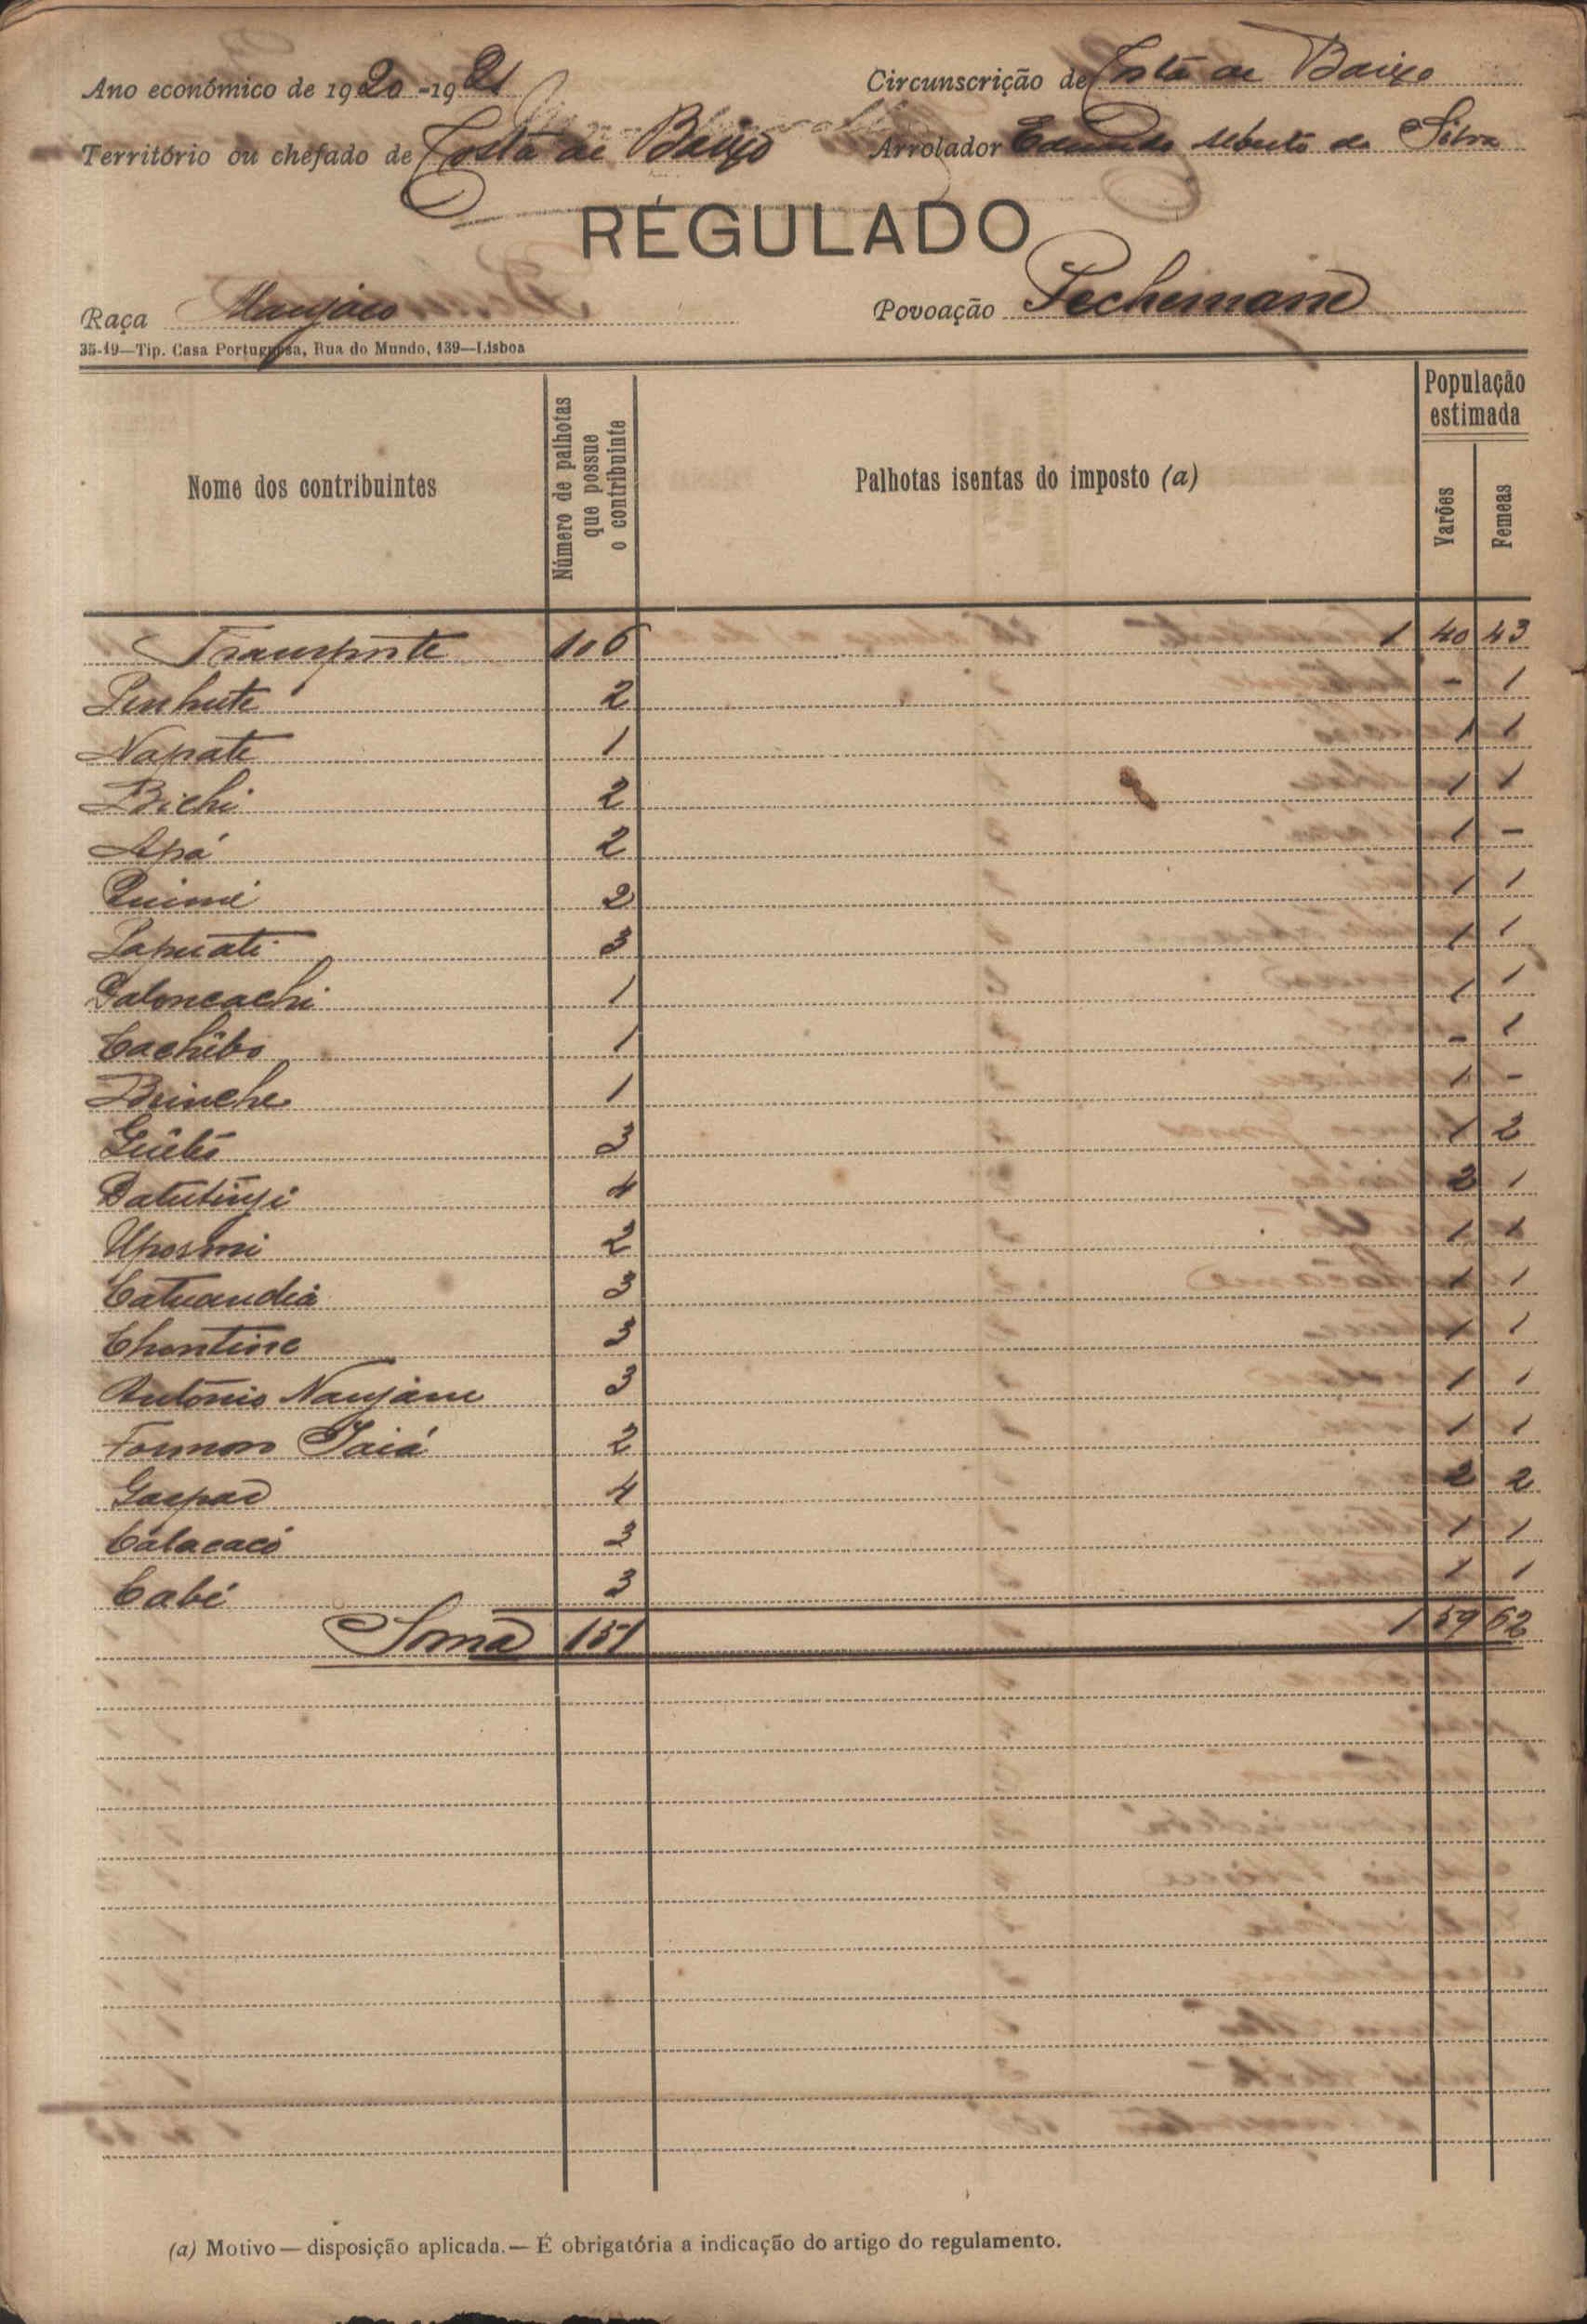 Ano económico de 1920-1921
Circunscrição de Costa de Baixo
Território ou chefado de Costa de Baixo
Arrolador Eduardo Alberto da Silva
REGULADO
Raça Manjaco
Povoação Pechemane
35-19—Tip. Casa Portuguesa, Rua do Mundo, 139—Lisboa
Nome dos contribuintes
Número de palhotas que possue o contribuinte
Palhotas isentas do imposto (a)
População estimada
Varões
Femeas
Transporte 106 1 40 43
Penhute 2 - 1
Napate 1 1 1
Bichi 2 1 1
Apá 2 1 -
Quimé 2 1 1
Papuati 3 1 1
Daloncachi 1 1 1
Cachibo 1 - 1
Buinche 1 1 -
3 1 2
4 2 1
2 1 1
Catuandia 3 1 1
Chontine 3 1 1
António Nanjam 3 1 1
2 1 1
Gaspar 4 2 2
Calacacó 3 1 1
Cabé 3 1 1
Soma 151 1 59 62
(a) Motivo — disposição aplicada. — É obrigatória a indicação do artigo do regulamento.